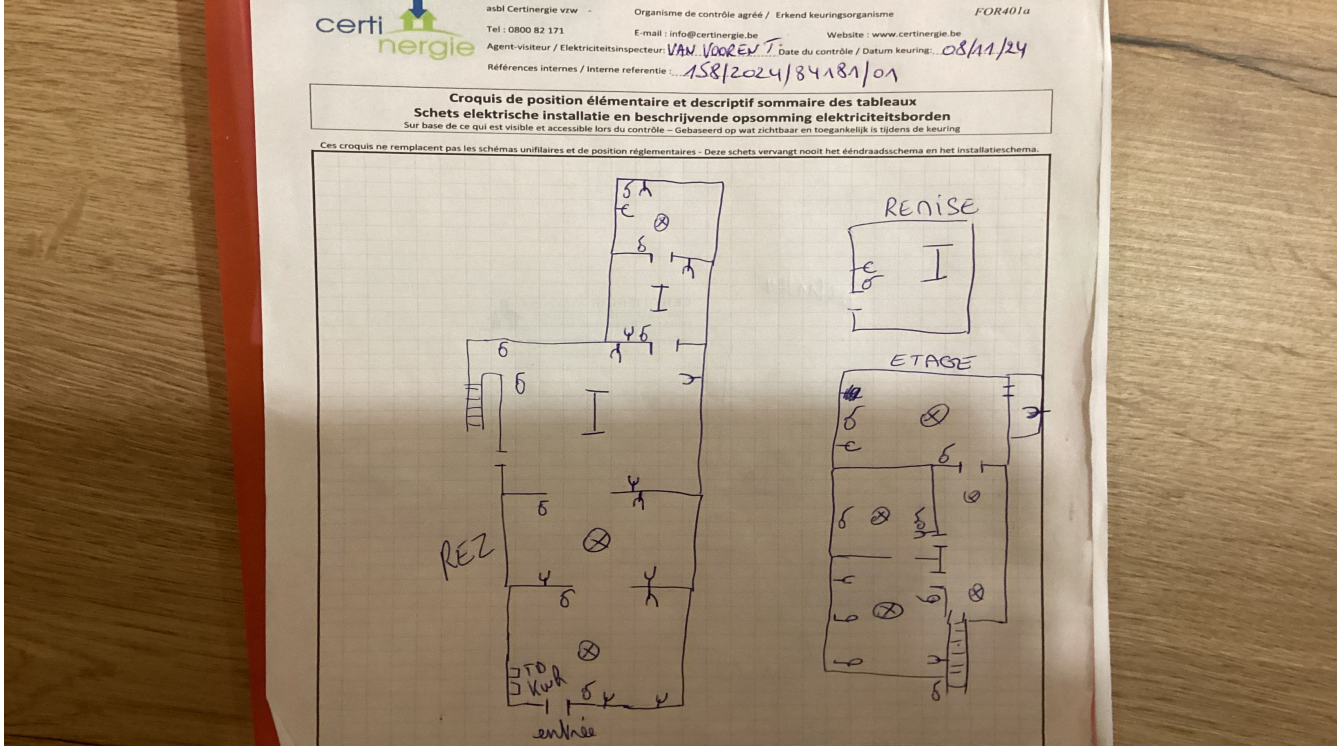 certi
nergie
asbl Certinergie vzw -
Organisme de contrôle agréé / Erkend keuringsorganisme
FOR401a
Tel : 0800 82 171
E-mail : info@certinergie.be
Website : www.certinergie.be
Agent-visiteur / Elektriciteitsinspecteur: VAN VOOREN T. Date du contrôle / Datum keuring: 08/11/24
Références internes / Interne referentie : 158/2024/84181/01
Croquis de position élémentaire et descriptif sommaire des tableaux
Schets elektrische installatie en beschrijvende opsomming elektriciteitsborden
Sur base de ce qui est visible et accessible lors du contrôle – Gebaseerd op wat zichtbaar en toegankelijk is tijdens de keuring
Ces croquis ne remplacent pas les schémas unifilaires et de position réglementaires - Deze schets vervangt nooit het ééndraadsschema en het installatieschema.
REMISE
ETAGE
REZ
TD
KwR
entrée